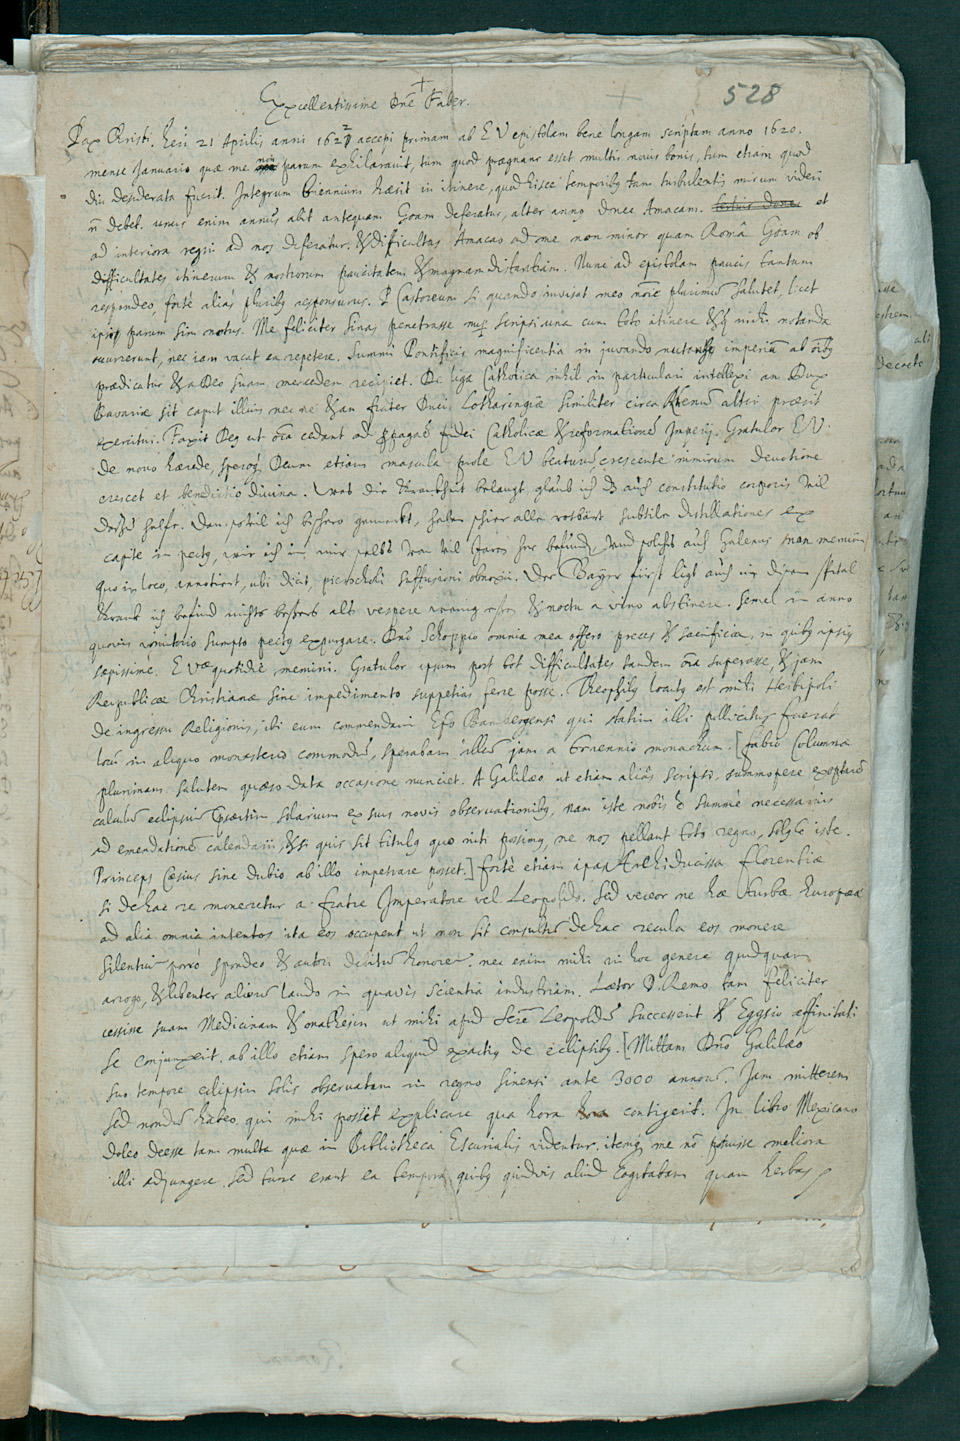 +
528
Excellentissime Dne Faber.
Pax Christi. heri 21 Aprilis anni 1622 accepi primam ab EV epistolam bene longam scriptam anno 1620.
mense Januario quæ me non parum exhilaravit, tum quod prægnans esset multis novis bonis, tum etiam quod
diu desiderata fuerit. Integrum biennium hæsit in itinere, quod hisce temporibus tam turbulentis mirum videri
n debet. unus enim annus abit antequam Goam deferatur, alter anno donec Amacam. et
ad interiora regni ad nos deferatur. & difficultas Amacao ad me non minor quam Româ Goam ob
difficultates itinerum & nostrorum paucitatem & magnam distantiam. Nunc ad epistolam paucis tantum
respondeo, forte alias pluribus responsurus. P Castoreum si quando invisat meo noïe plurimum salutet, licet
ipsi parum sim notus. Me feliciter Sinas penetrasse scripsi una cum toto itinere & quæ mihi notanda
occurrerunt, nec iam vacat ea repetere. Summi Pontificis magnificentia in juvando nutante imperio ab oïbus
prædicatur & a Deo suam mercedem recipiet. De liga Catholica nihil in particulari intellexi an Dux
Bavariæ sit caput illius nec ne & an frater Ducis Lotharingiæ similiter circa Rhenum alteri præsit
exercitui. Faxit Deus ut oïa cedant ad propagaõe fidei Catholicæ & reformationem Imperij. Gratulor EV.
de novo hærede, speroq Deum etiam mascula prole EV beaturum, crescente nimirum devotione
crescet et benedictio divina. Was die Kranckheit belangt, glaub ich dz auch constitutio corporis vil
darzu helfe. Dan so vil ich bisshero gemerkt, haben schier alle rotbärt subtile distillationes ex
capite in pectus, wie ich in mir selbs von vil Jaren her befunden, und solchs auch Galenus non memini
quo in loco, annotirt, ubi dicit, picrocholi suffusioni obnoxii. Der Bayr fürst ligt auch in disem spital
kranck ich befind nichts bessers als vespere wenig essen & noctu a vino abstinere. semel in anno
quovis vomitorio sumpto pectus expurgare. Dno Schoppio omnia mea offero preces & sacrificia, in quibus ipsius
sæpissime. EVæ quotidie memini. Gratulor ipsum post tot difficultates tandem oïa superasse, & jam
Reipublicæ Christianæ sine impedimento suppetias ferre posse. Theophilus locutus est mihi Herbipoli
de ingressu Religionis, ibi eum commendavi Epo Bambergensi qui statim illi pollicitus fuerat
locum in aliquo monasterio commodum, sperabam illum jam a triennio monachum. [Fabio Columnæ
plurimam salutem quæso data occasione nunciet. A Galilæo ut etiam alias scripsi, summopere exoptarem
calculum eclipsium præsertim solarium ex suis novis observationibus, nam iste nobis e summe necessarius
ad emendationem calendarii, & si quis sit titulus quo niti possimus, ne nos pellant toto regno, solus e iste.
Princeps Cæsius sine dubio ab illo impetrare posset.] forte etiam ipsa Archiducissa Florentiæ
si de hac re moneretur a fratre Imperatore vel Leopoldo. Sed vereor ne hæ turbæ Europeæ
ad alia omnia intentos ita eos occupent ut non sit consultum de hac recula eos monere
silentium porro spondeo & autori debitum honorem. nec enim mihi in hoc genere quidquam
arrogo, & libenter aliorum laudo in quavis scientia industriam. Lætor D. Remo tam feliciter
cessisse suam Medicinam & mathesin ut mihi apud Serm Leopoldum successerit & Eggsio affinitati
se conjunxerit. ab illo etiam spero aliquid exactius de eclipsibus. [Mittam Dno Galilæo
suo tempore eclipsin solis observatam in regno sinensi ante 3000 annorum. Jam mitterem
sed nondum habeo qui mihi posset explicare qua hora contigerit. In libro Mexicano
doleo deesse tam multa quæ in Bibliotheca Escurialis videntur. itemq me nõ potuisse meliora
illi adjungere, sed tunc erant ea tempora quibus quidvis aliud cogitabam quam herbas